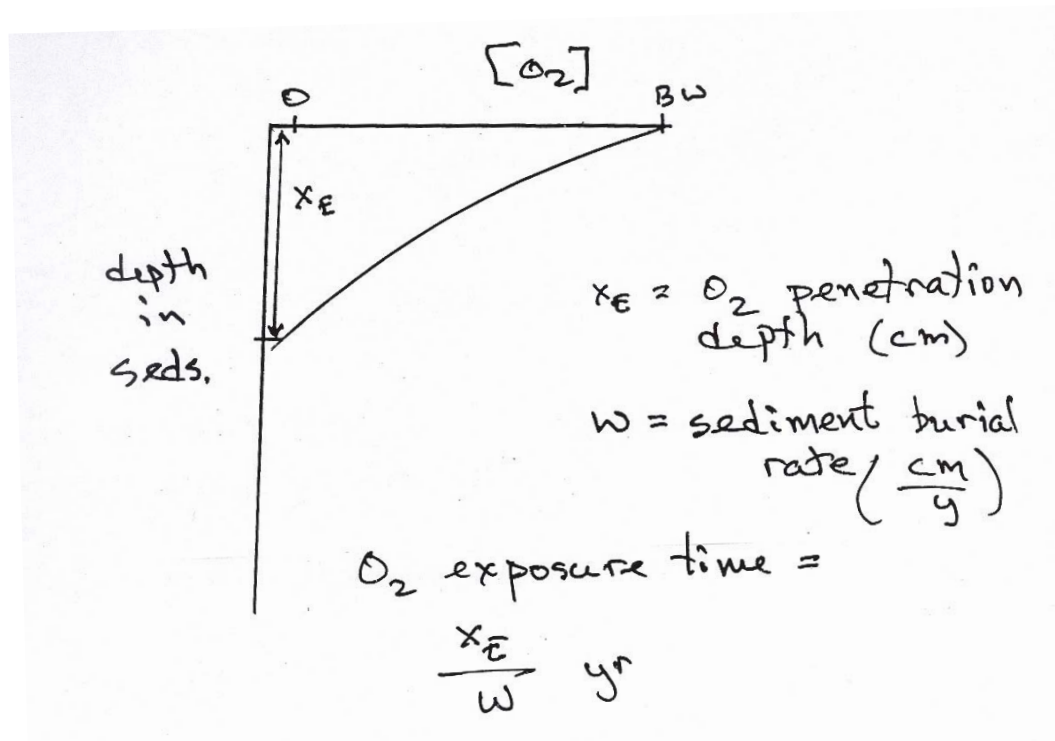 [O₂]
O BW
x_E
depth
in
seds.
x_E = O₂ penetration
depth (cm)
w = sediment burial
rate (cm/y)
O₂ exposure time =
x_E/w yr